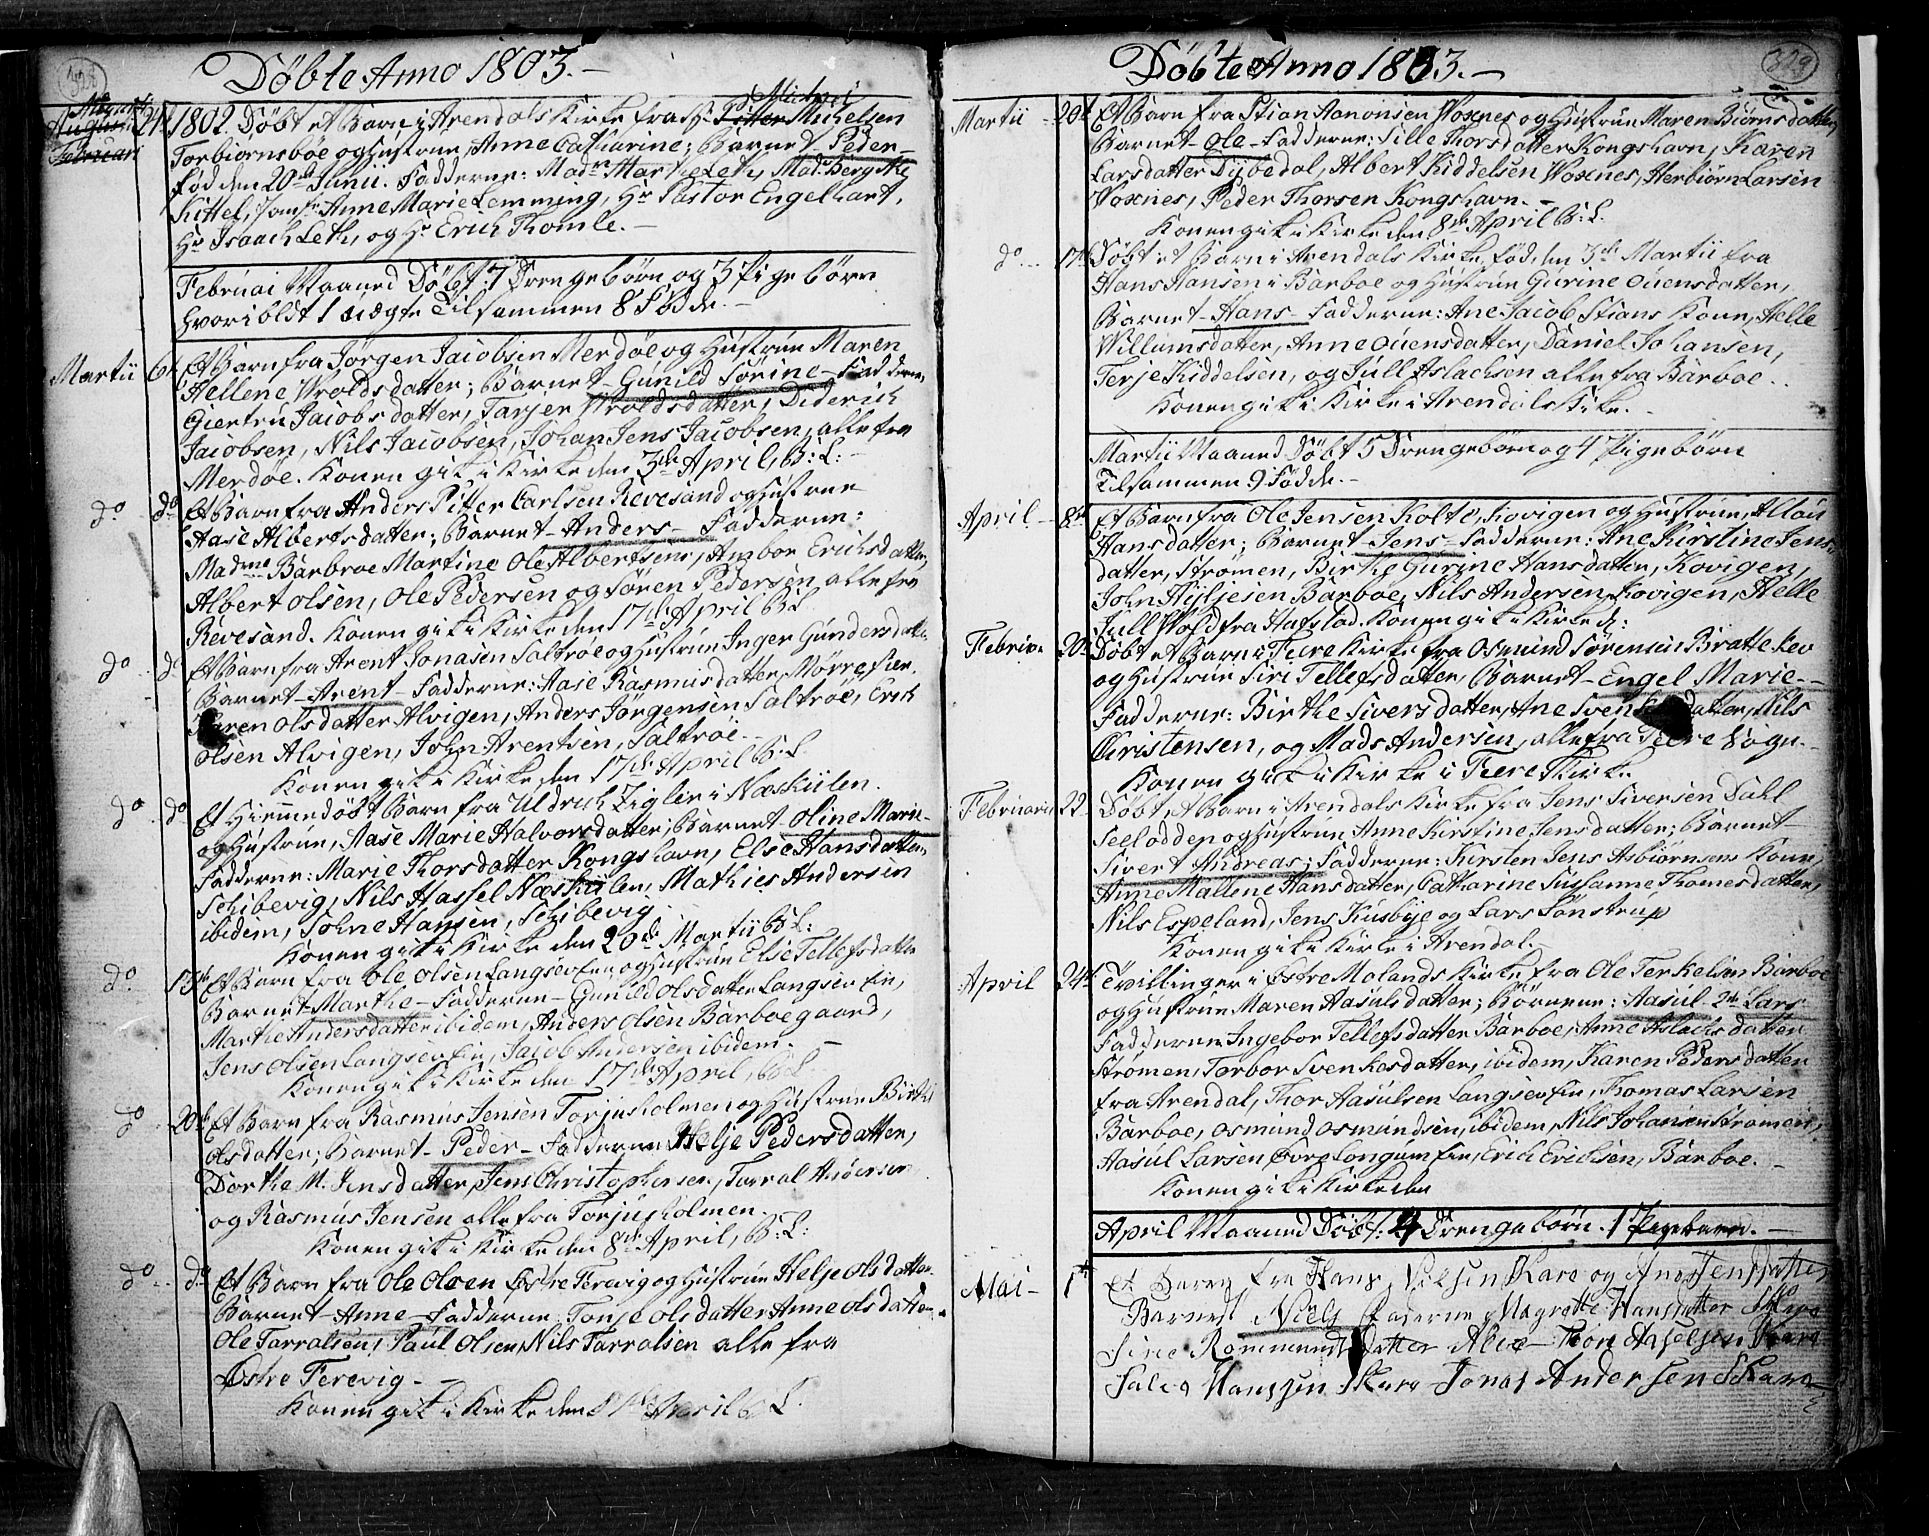 328
Döbte Anno 1803.-
Augusti 24 1802. Döbt et Barn i Arendals Kirke fra Hr Pitter Michelsen
Michael
Februari
Torbiornsböe og Hustrue, Anne Catharine; Barnet- Peder-
föd den 20de Junii. Fadderne: Madm Marthe Leth, Mad: Berg
Kittel, Jomfr Anne Marie Lemming, Hr Pastor Engelhart,
Hr Isaach Leth, og Hr Erich Thomle.-
Februai Maaned Döbt: 7 Drengebörn og 3 Pigebörn
hvoribldt 1 uægte Tilsammen 8 Födde.-
Martii 6te Et Barn fra Jörgen Jacobsen Merdöe og Hustrue Maren
Hellene Wroldsdatter; Barnet- Gunild Sörine- Fadderne,
Giertru Jacobsdatter, Tarjer Wroldsdatter, Diderich
Jacobsen, Nils Jacobsen, Johan Jens Jacobsen, alle fra
Merdöe. Konen gik i Kirke den 3de April, B: L:
do do Et Barn fra Anders Pitter Carlsen Revesand og Hustrue
Aase Albertsdatter; Barnet- Anders- Fadderne:
Madme Barbroe Martine Ole Albertsens, Ambor Erichsdatter,
Albert Olsen, Ole Pedersen og Sören Pedersen alle fra
Revesand. Konen gik i Kirke den 17de April B: L
do do Et Barn fra Arent Jonasen Saltröe og Hustrue Inger Gundersdatter
Barnet- Arent- Fadderne: Aase Rasmusdatter Mörrefier,
Karen Olsdatter Alvigen, Anders Jörgensen Saltröe, Erich
Olsen Alvigen, John Arentsen, Saltröe.-
Konen gik i Kirke den 17de April B: L
do do Et Hiemmedöbt Barn fra Uldrich Zigler i Næskiilen.
og Hustrue, Aase Marie Halvorsdatter; Barnet- Oline Marie-
Fadderne: Marie Thorsdatter Kongshavn, Else Hansdatter
Schibevig, Nils Hassel Næskiilen, Mathies Andersen
ibidem, Johne Hansen, Schibevig
Konen gik i Kirke den 20de Martii B: L:
do 13de Et Barn fra Ole Olsen Langsev og Hustrue Else Tellefsdatter
Barnet- Marthe- Fadderne- Gunild Olsdatter Langsev
Marthe Andersdatter ibidem, Anders Olsen Barboegaard,
Jens Olsen Langsev Jacob Andersen ibidem.-
Konen gik i Kirke den 17de April, B: L
do 20de Et Barn fra Rasmus Jensen Torjusholmen og Hustrue Birthe
Olsdatter; Barnet- Peder- Fadderne Helje Pedersdatter,
Dorthe M. Jensdatter, Jens Christophersen, Tarral Andersen
og Rasmus Jensen alle fra Torjusholmen.
Konen gik i Kirke den 8de April, B: L:
do do Et Barn fra Ole Olsen Östre Terevig og Hustrue Helje Olsdatter
Barnet- Anne- Fadderne Tonje Olsdatter Anne Olsdatter
Ole Tarralsen, Paul Olsen, Nils Tarralsen alle fra
Östre Ferevig.-
Konen gik i Kirke den April B: L
329
Döbte Anno 1803.-
Martii 20de Et Barn fra Stian Aanonsen Woxnes og Hustrue Maren Biörnsdatter
Barnet- Ole- Fadderne: Sille Thorsdatter Kongshavn, Karen
Larsdatter Dybedal, Albert Kiddelsen Woxnes, Herbiörn Larsen
Woxnes, Peder Thorsen Kongshavn.-
Konen gik i Kirke den 8de April B: L.
do 17de Döbt et Barn i Arendals Kirke, föd den 3de Martii fra
Hans Hansen i Barboe og Hustrue Gurine Ouensdatter,
Barnet- Hans- Fadderne: Ane Jacob Stians Kone, Helle
Willumsdatter, Anne Ouensdatter, Daniel Johansen,
Terje Kiddelsen, og Jull Aslachsen alle fra Barboe.
Konen gik i Kirke i Arendals Kirke.
Martii Maaned Döbt 5 Drengebörn og 4 Pigebörn
Tilsammen 9 Födde.-
April 8de Et Barn fra Ole Jensen Kolte, Kovigen og Hustrue,
Hansdatter; Barnet- Jens- Fadderne: Ane Kirstine Jens-
datter, Strömen, Birthe Gurine Hansdatter, Kovigen,
John Barboe, Nils Andersen, Kovigen, Helle
Jull Wold fra Hafstad. Konen gik i Kirke d:
Februar 20de Döbt et Barn i Fiere Kirke fra Osmund Sörensen Brattekev
og Hustrue Siri Tellefsdatter, Barnet- Engel Marie.-
Fadderne: Birthe Siversdatter, Ane datter, Nils
Christensen, og Mads Andersen, alle fra Fiere Sogn.-
Konen gik i Kirke i Fiere Kirke
Februarii 22 Döbt et Barn i Arendals Kirke fra Jens Siversen Dahl
Seelodden og Hustrue Anne Kirstine Jensdatter; Barnet
Sivert Andreas; Fadderne: Kirsten Jens Asbiörnsens Kone,
Anne Mallene Hansdatter, Catharine Sussanne Thomesdatter,
Nils Espeland, Jens Kusbye og Lars Lönstrup
Konen gik i Kirke i Arendal.
April 24de Tvillinger i Östre Molands Kirke fra Ole Terkelsen Barboe
og Hustrue Maren Aasulsdatter; Börnene: Aasul 2de Lars
Fadderne Ingebor Tellefsdatter Barboe, Anne Aslachsdatter
Strömen, Torbor Svenkesdatter, ibidem, Karen Pedersdatter
fra Arendal, Thor Aasulsen Langsev Thomas Larsen
Barboe, Osmund Osmundsen, ibidem, Nils Johansen Strömen,
Aasul Larsen Longum Erich Erichsen, Barboe.-
Konen gik i Kirke den
April Maaned Döbt: 4 Drengebörn. 1 Pigebarn.-
Mai- 1te Et Barn fra Hans Nielsen Skare og
Barnet Niels Faderne Magrette Hansdatter
Sine Rommundsdatter Alve Thor Aaselsen Skare
Hanssen Skare Jonas Andersen Skare